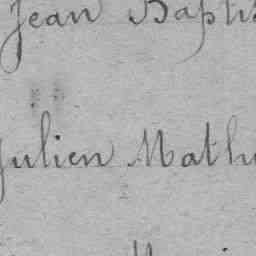 Jean Baptis
Julien Mathu